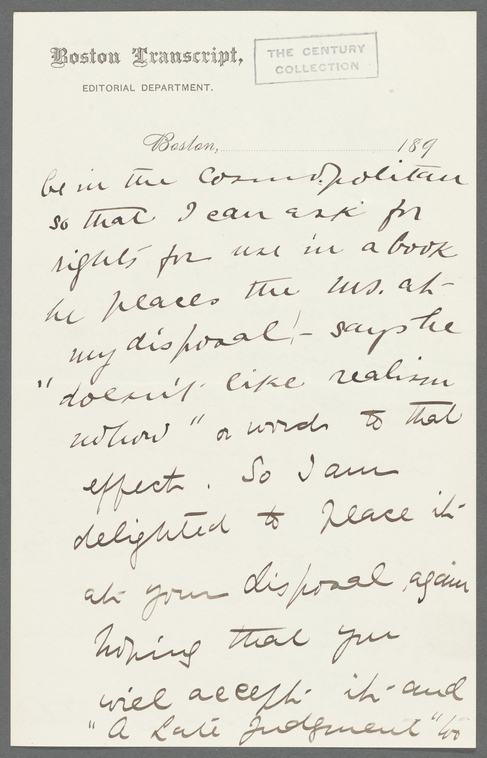 Boston Transcript,
EDITORIAL DEPARTMENT.
THE CENTURY
COLLECTION
Boston, 189
be in the Cosmopolitan
so that I can ask for
rights for use in a book
he places the MS. at
my disposal! - says he
"doesn't like realism
nohow" or words to that
effect. So I am
delighted to place it
at your disposal again
hoping that you
will accept it and
"A Late Judgment" to